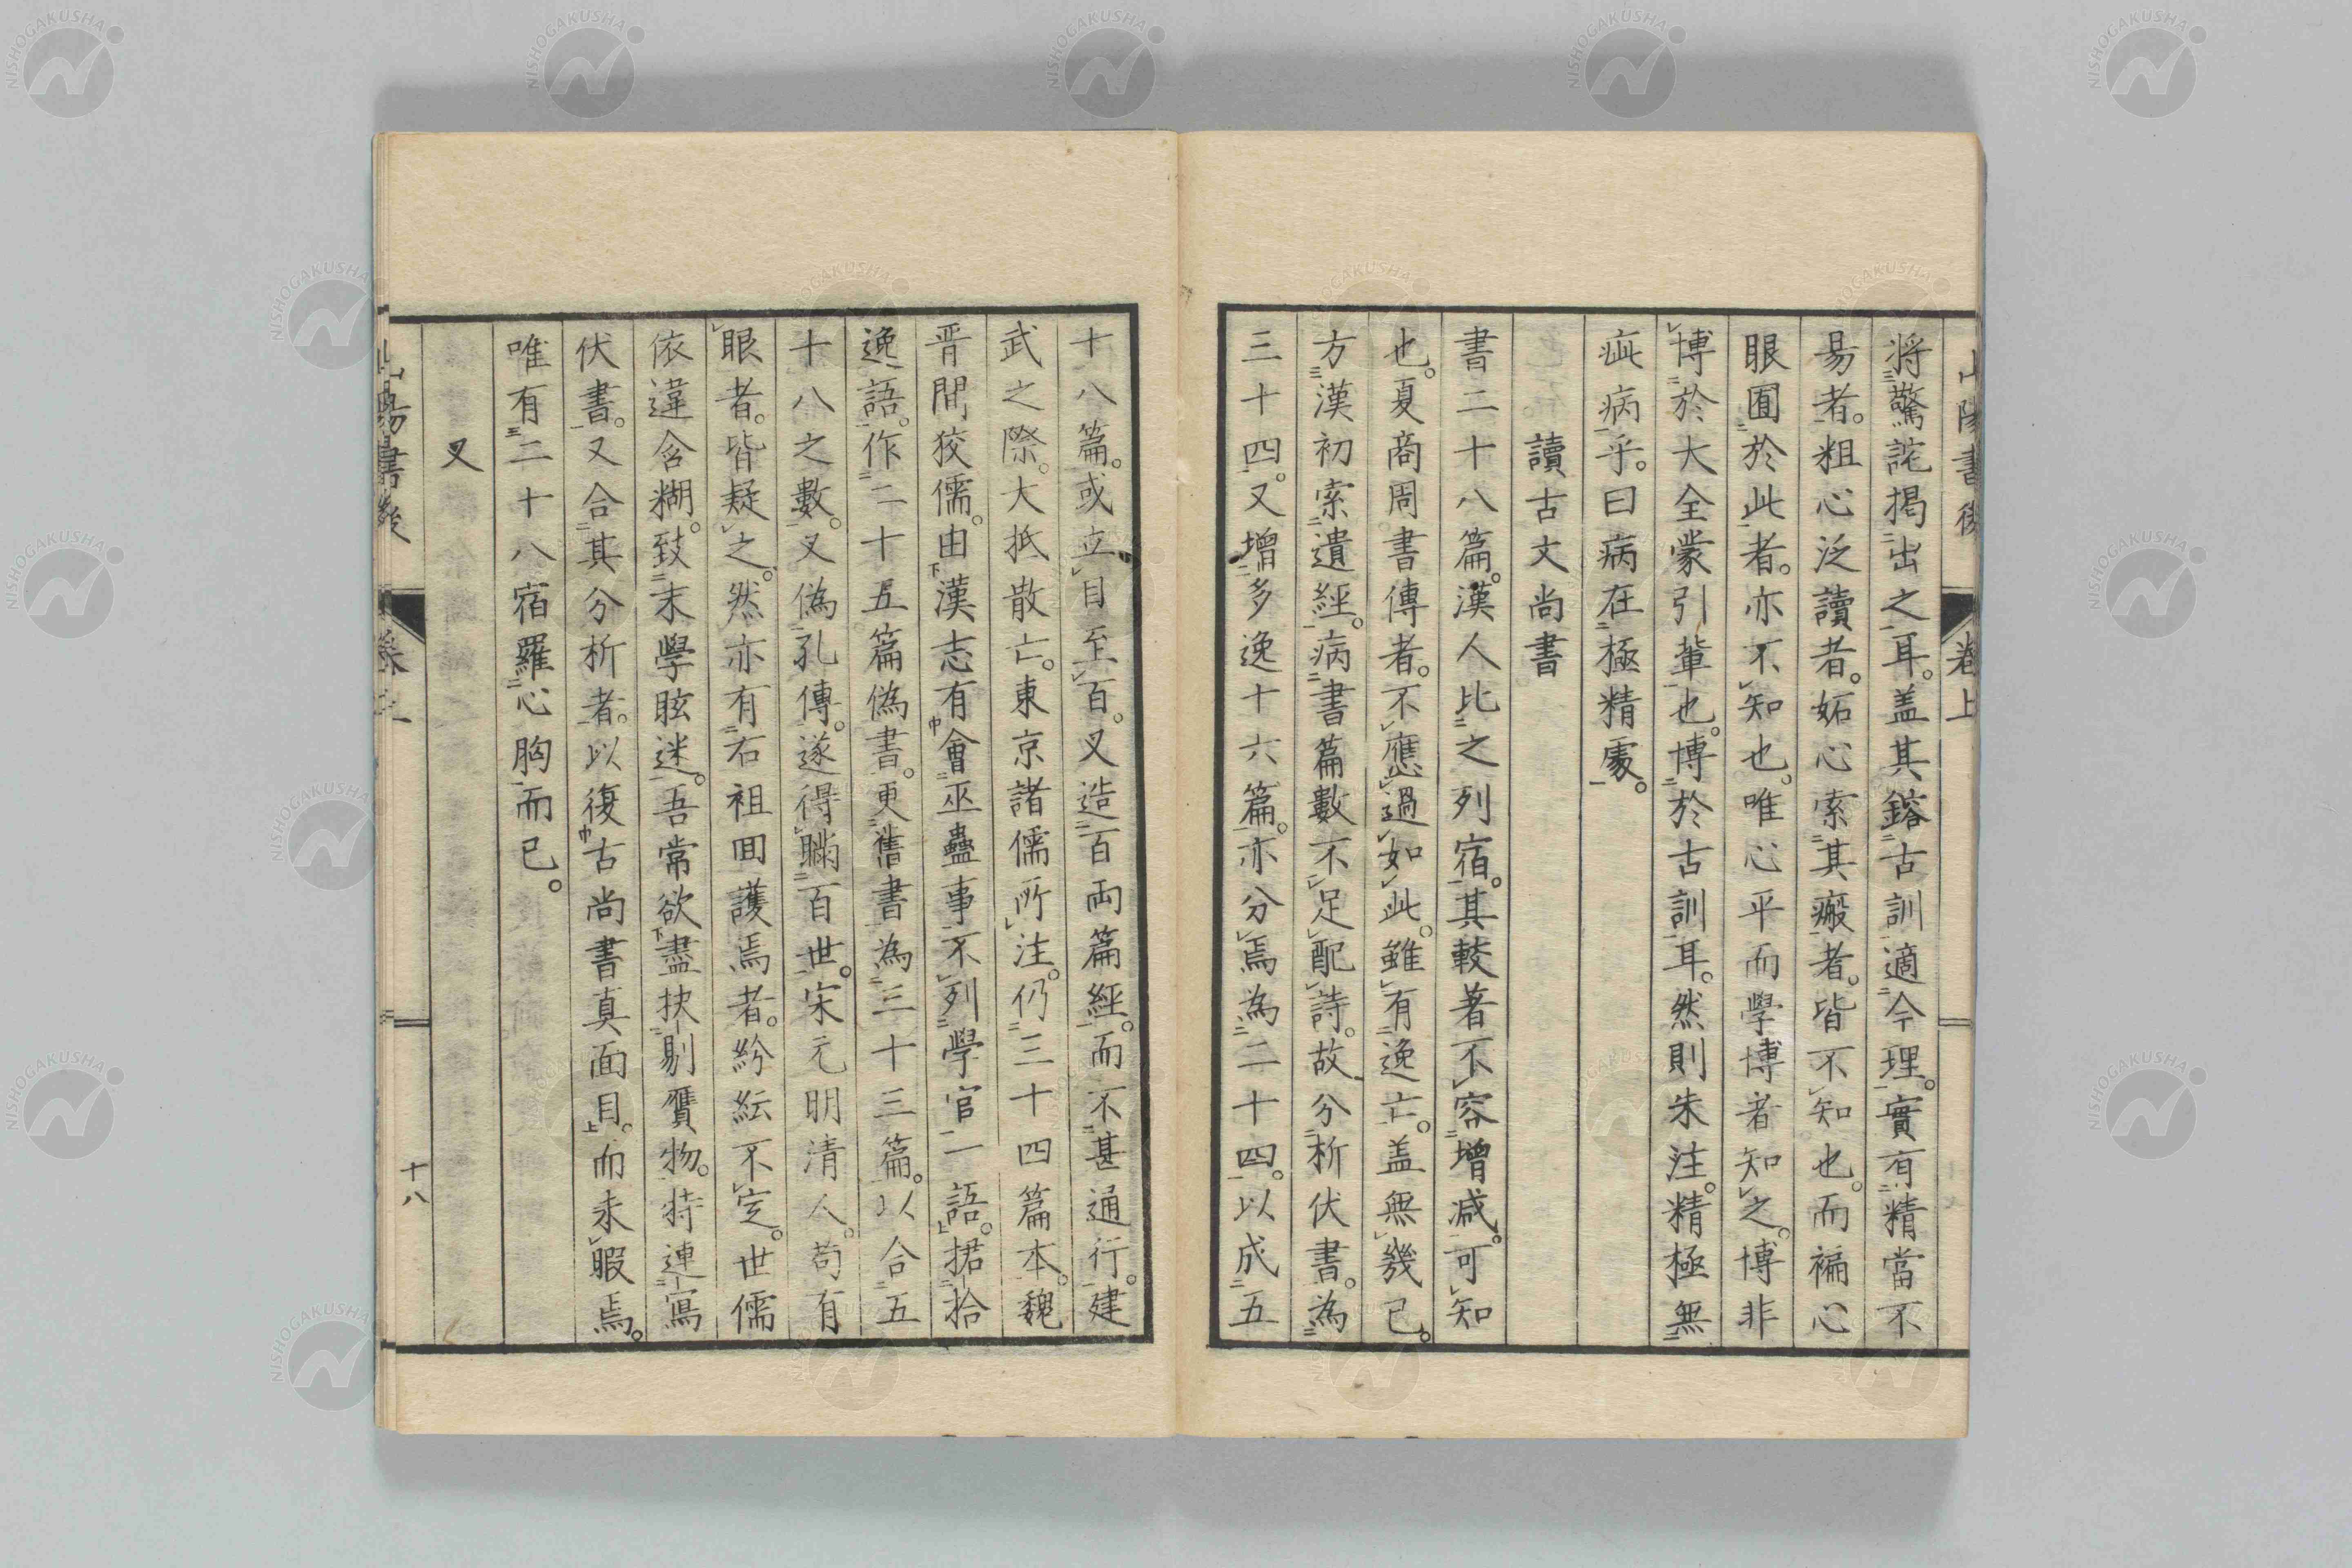 山陽書後 卷上
將驚詫揭出之耳。盖其鎔古訓適今理。實有精當不
易者。粗心泛讀者。妬心索其瘢者。皆不知也。而褊心
眼囿於此者。亦不知也。唯心平而學博者知之。博非
博於大全蒙引輩也。博於古訓耳。然則朱注精極無
疵病乎。曰病在極精處。
讀古文尚書
書二十八篇。漢人比之列宿。其較著不容增减。可知
也。夏商周書傳者。不應過如此。雖有逸亡。盖無幾已。
方漢初索遺經。病書篇數不足配詩。故分析伏書。為
三十四。又增多逸十六篇。亦分焉為二十四。以成五
十八篇。或立目至百。又造百両篇經。而不甚通行。建
武之際。大抵散亡。東京諸儒所注。仍三十四篇本。魏
晋間狡儒。由漢志有會巫蠱事不列學官一語。据拾
逸語。作二十五篇偽書。更舊書為三十三篇。以合五
十八之數。又偽孔傳。遂得瞞百世。宋元明清人。苟有
眼者。皆疑之。然亦有右祖囬護焉者。紛紜不定。世儒
依違含糊。致末學眩迷。吾常欲盡抉剔贋物。特連寫
伏書。又合其分析者。以復古尚書真面目。而未暇焉。
唯有二十八宿羅心胸而已。
又
山陽書後
十八